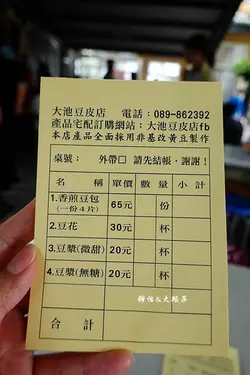 大池豆皮店 電話:089-862392
產品宅配訂購網站:大池豆皮店fb
本店產品全面採用非基改黃豆製作
桌號: 外帶□ 請先結帳,謝謝!
名稱 單價 數量 小計
1.香煎豆包 65元 份
(一份4片)
2.豆花 30元 杯
3.豆漿(微甜) 20元 杯
4.豆漿(無糖) 20元 杯
合計